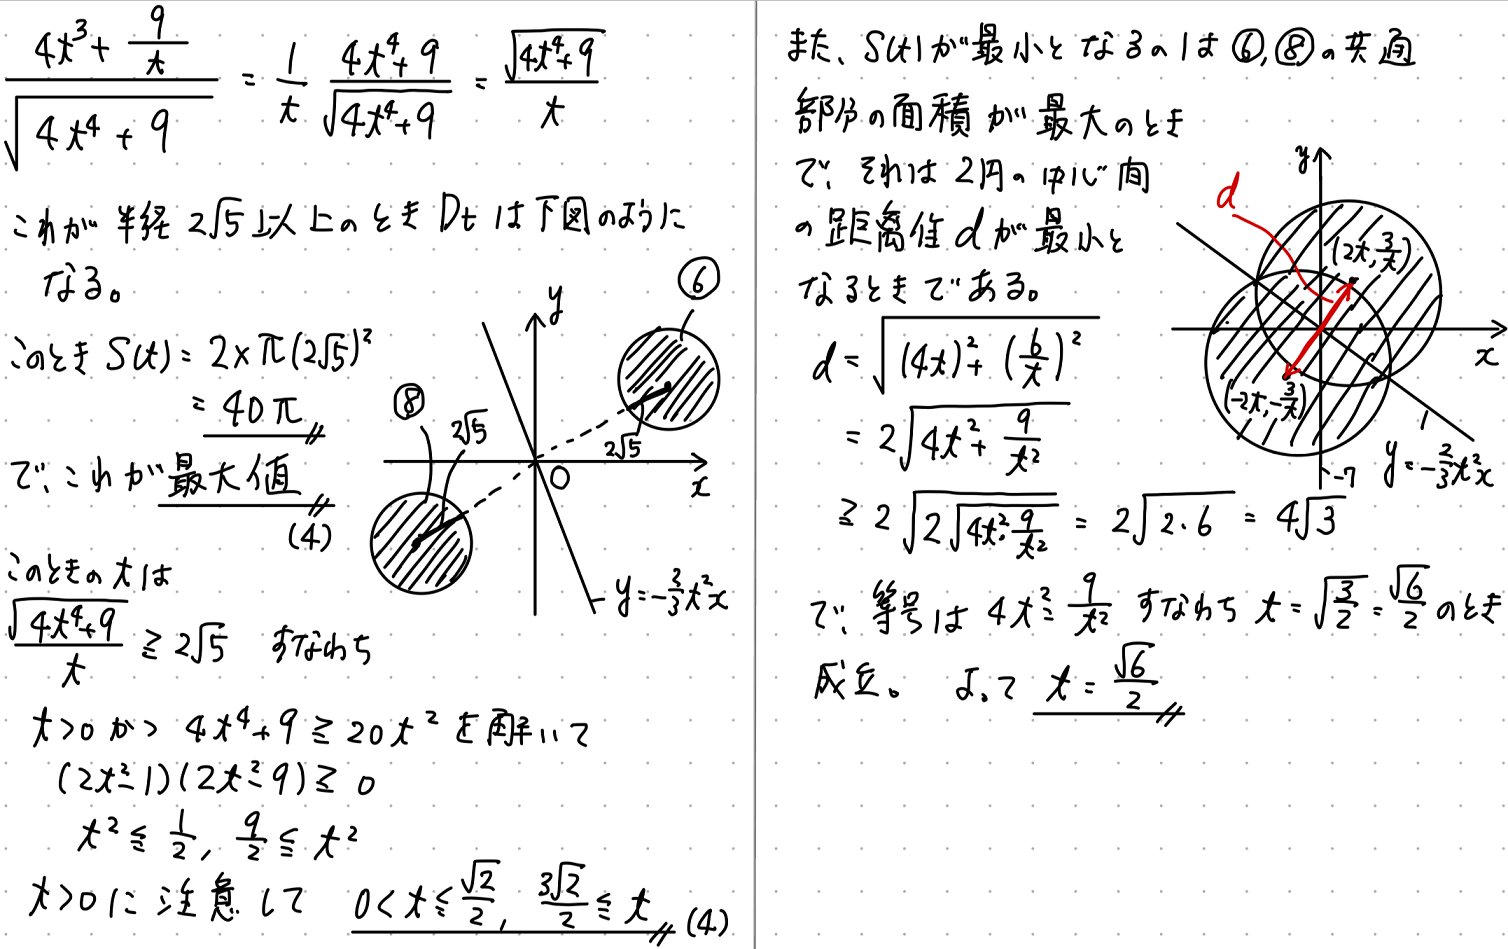 (4t³ + 9/t)/√(4t⁴ + 9) = 1/t · (4t⁴+9)/√(4t⁴+9) = √(4t⁴+9)/t
これが半径 2√5 以上のとき Dt は下図のように
なる。
このとき S(t) = 2×π(2√5)²
= 40π
で、これが最大値
(4)
⑥
y
2√5
x
O
⑧
2√5
y = -2/3 t²x
このときの t は
√(4t⁴+9)/t ≧ 2√5 すなわち
t>0 かつ 4t⁴+9 ≧ 20t² を解いて
(2t²-1)(2t²-9) ≧ 0
t² ≦ 1/2, 9/2 ≦ t²
t>0 に注意して 0<t≦√2/2, 3√2/2 ≦ t (4)
また、S(t)が最小となるのは⑥,⑧の共通
部分の面積が最大のとき
で、それは2円の中心間
の距離 d が最小と
なるときである。
y
d
(2t, 3/t)
x
(-2t, -3/t)
-7
y = -2/3 t²x
d = √((4t)² + (6/t)²)
= 2√(4t² + 9/t²)
≧ 2√(2√(4t²·9/t²)) = 2√(2·6) = 4√3
で、等号は 4t² = 9/t² すなわち t = √(3/2) = √6/2 のとき
成立。 よって t = √6/2